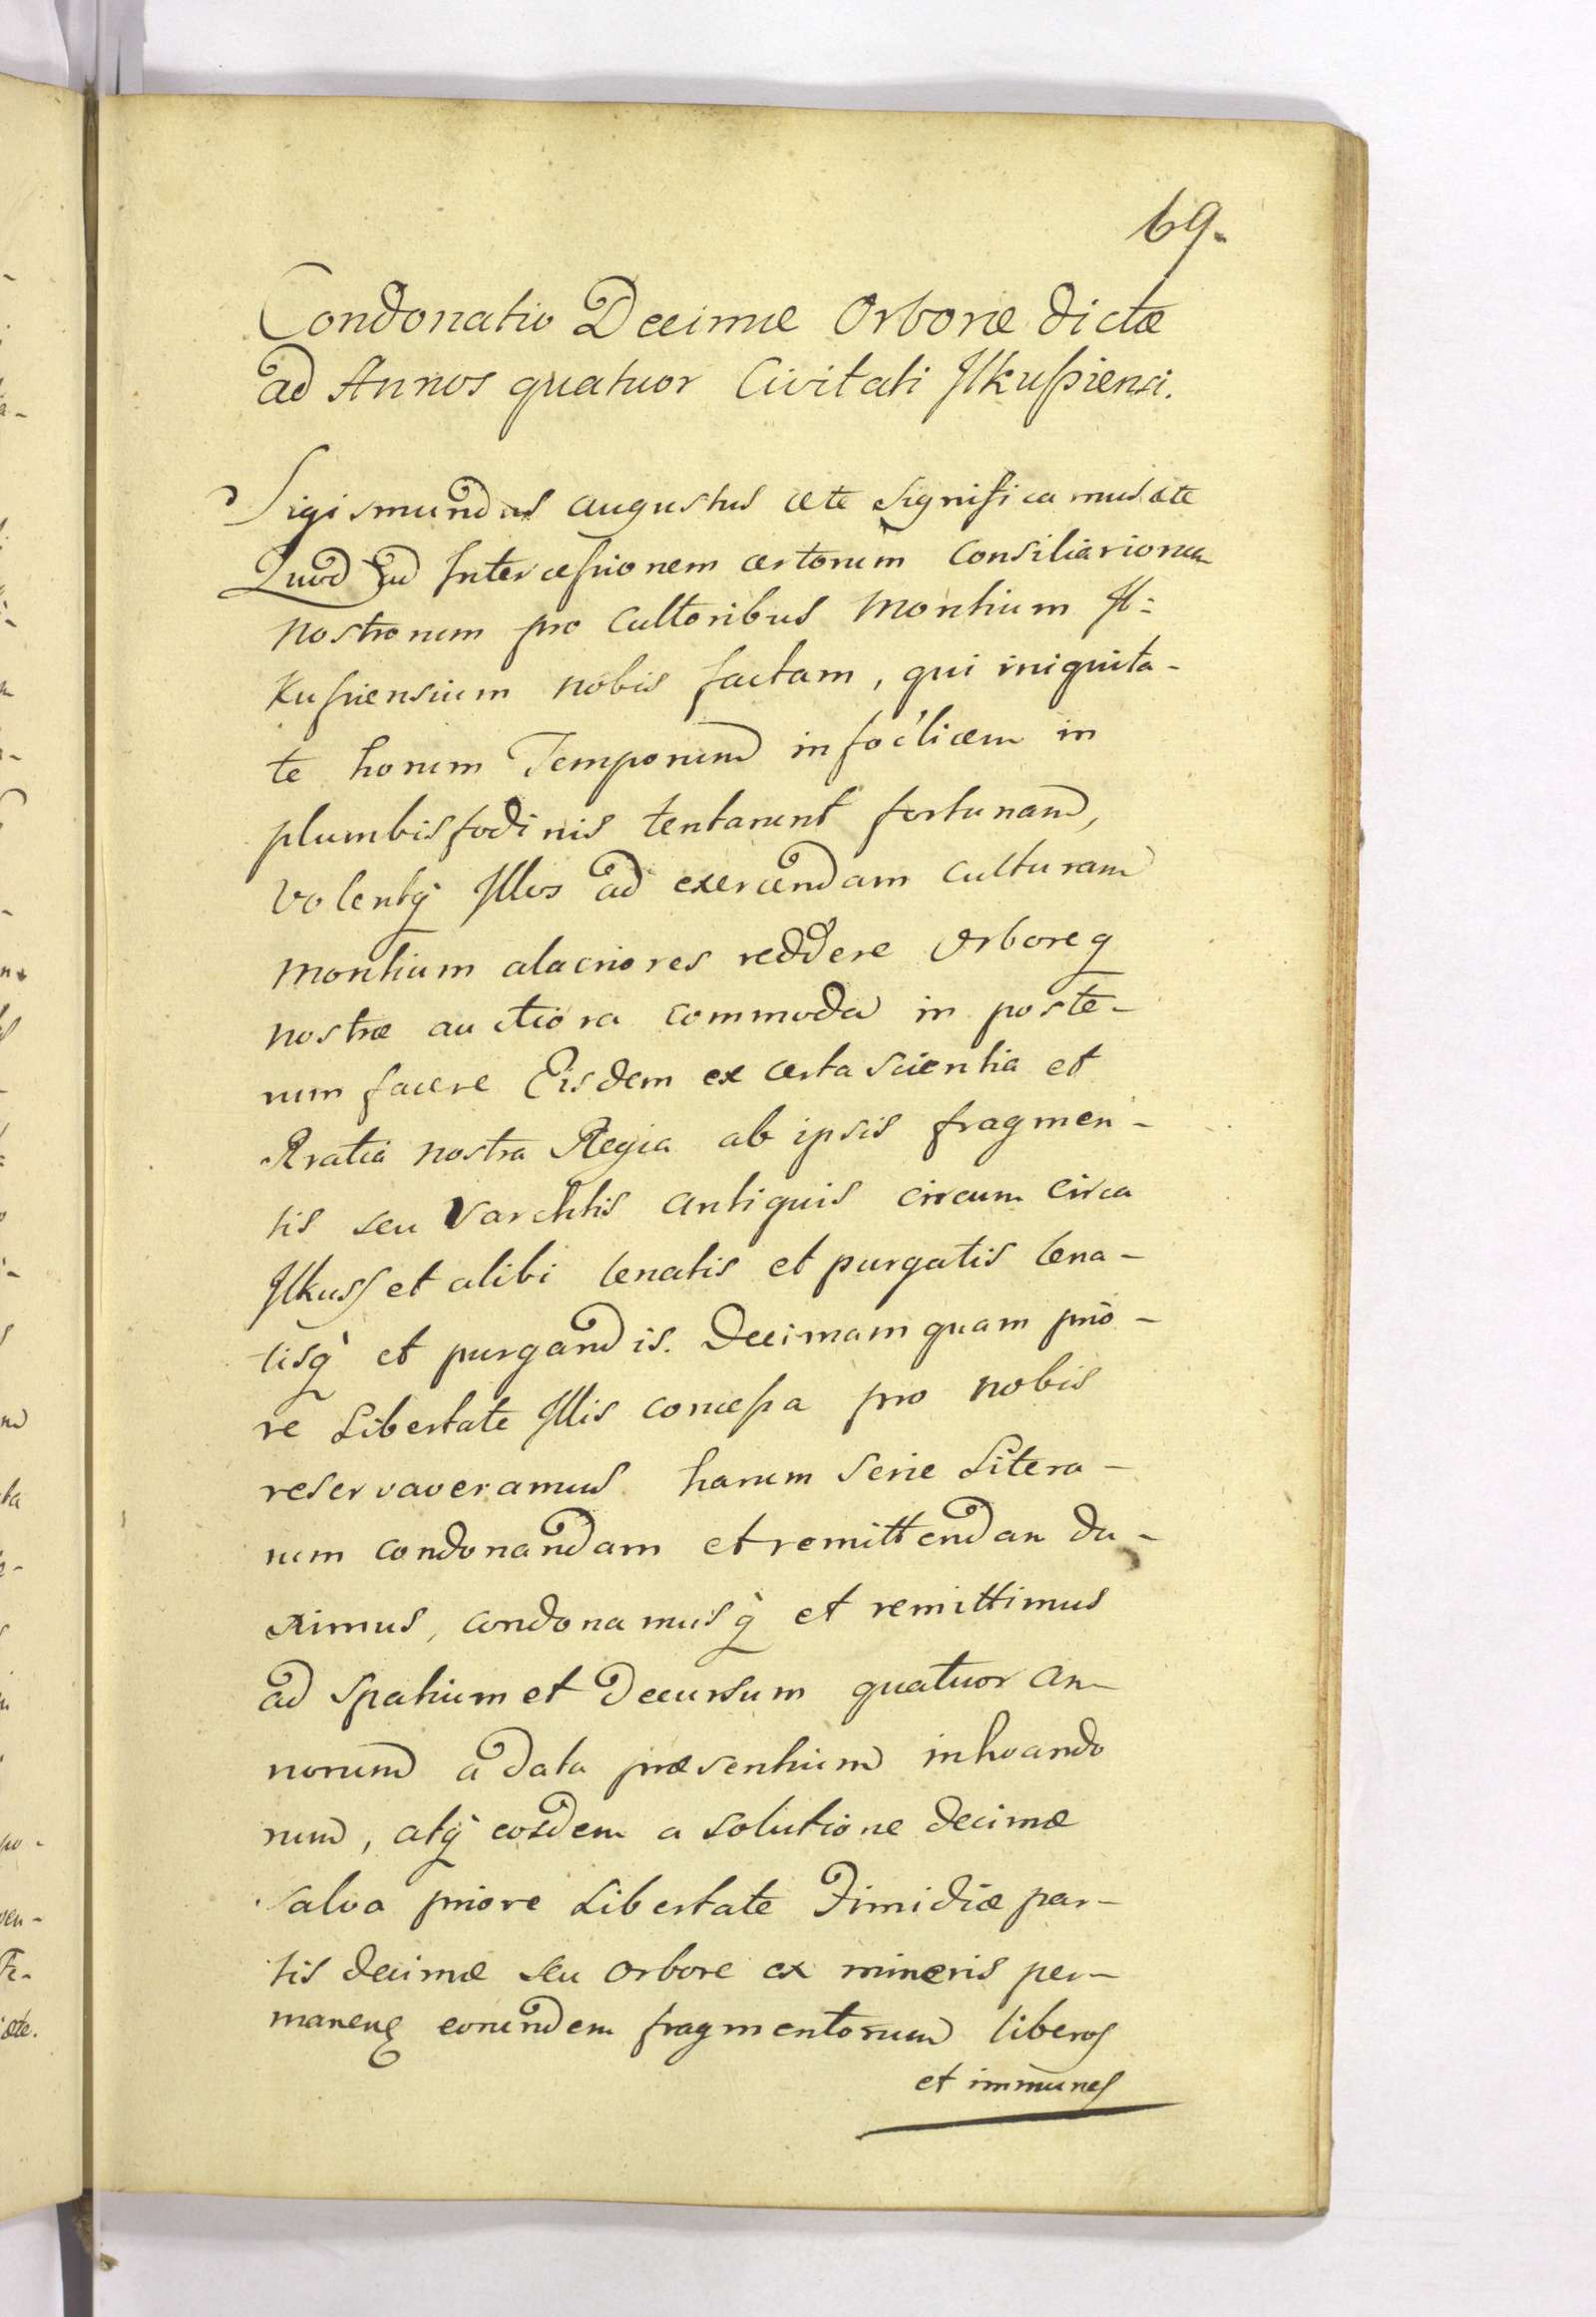 69.
Condonatio Decimæ Orboræ dictæ
ad Annos quatuor Civitati Ilkussiensi.
Sigismundus augustus ætc significamus ætc
Quod ad Intercessionem certorum Consiliariorum
Nostrorum pro Cultoribus Montium Il:
Kussiensium nobis factam, qui iniquita-
te horum Temporum infœlicem in
plumbisfodinis tentarunt fortunam,
Volentq́ Illos ad exercendam culturam
Montium alacriores reddere Orboreq
nostræ auctiora commoda in poste-
rum facere Eisdem ex certa scientia et
Gratia nostra Regia ab ipsis fragmen-
tis seu Varchtis antiquis circum circa
Ilkuss et alibi lenatis et purgatis lena-
tisq̀ et purgandis. Decimam quam prio-
re Libertate Illis concessa pro nobis
reservaveramus harum serie Litera-
rum condonandam et remittendam du-
ximus, condonamusq̀ et remittimus
ad spatium et Decursum quatuor an-
norum a data præsentium inhoando
rum, atq̀ eosdem a solutione decimæ
salva priore Libertate Dimidiæ par-
tis decimæ seu orbore ex mineris per-
maneng eorundem fragmentorum liberos
et immunes